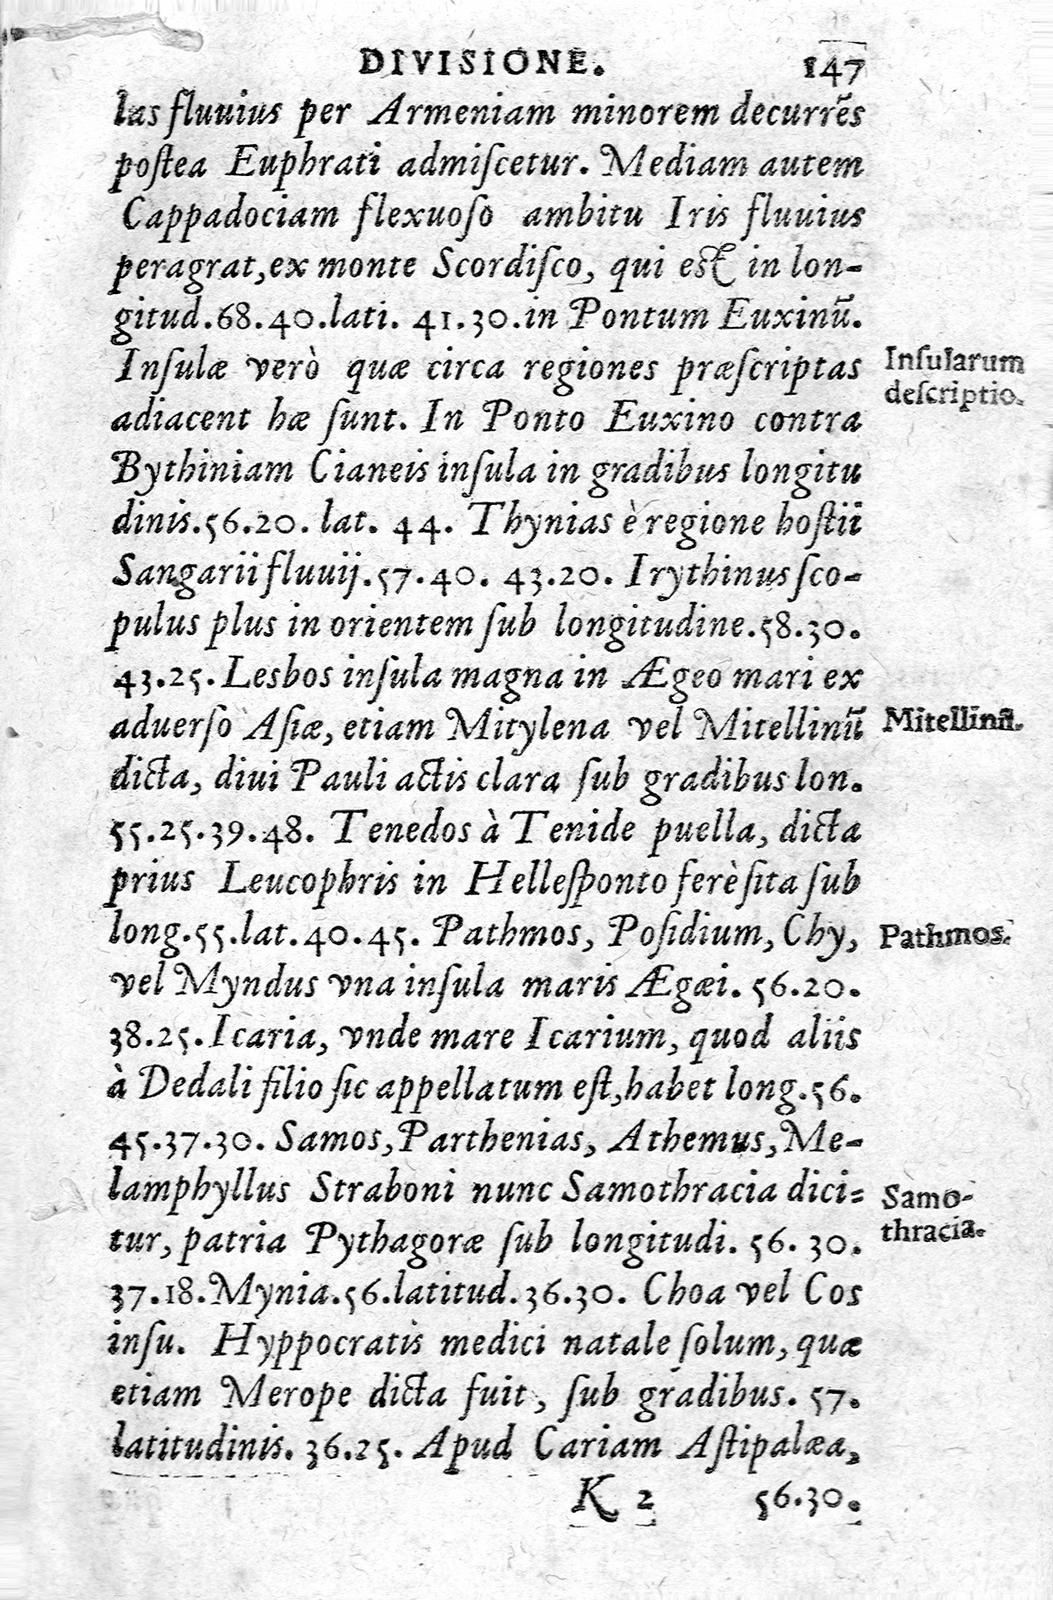 DIVISIONE. 147
las fluuius per Armeniam minorem decurrẽs
poſtea Euphrati admiſcetur. Mediam autem
Cappadociam flexuoſo ambitu Iris fluuius
peragrat, ex monte Scordiſco, qui eſt in lon-
gitud.68.40.lati. 41.30.in Pontum Euxinū.
Inſulæ verò quæ circa regiones præſcriptas
Inſularum
adiacent hæ ſunt. In Ponto Euxino contra
deſcriptio.
Bythiniam Cianeis inſula in gradibus longitu
dinis.56.20. lat. 44. Thynias è regione hoſtii
Sangarii fluuij.57.40. 43.20. Irythinus ſco-
pulus plus in orientem ſub longitudine.58.30.
43.25.Lesbos inſula magna in Ægeo mari ex
aduerſo Aſiæ, etiam Mitylena vel Mitellinū
Mitellinū.
dicta, diui Pauli actis clara ſub gradibus lon.
55.25.39.48. Tenedos à Tenide puella, dicta
prius Leucophris in Helleſponto ferè ſita ſub
long.55.lat.40.45. Pathmos, Poſidium, Chy,
Pathmos.
vel Myndus vna inſula maris Ægæi. 56.20.
38.25.Icaria, vnde mare Icarium, quod aliis
à Dedali filio ſic appellatum eſt, habet long.56.
45.37.30. Samos, Parthenias, Athemus, Me-
lamphyllus Straboni nunc Samothracia dici-
Samo-
tur, patria Pythagoræ ſub longitudi. 56. 30.
thracia.
37.18.Mynia.56.latitud.36.30. Choa vel Cos
inſu. Hyppocratis medici natale ſolum, quæ
etiam Merope dicta fuit, ſub gradibus. 57.
latitudinis. 36.25. Apud Cariam Aſtipalæa,
K 2 56.30.